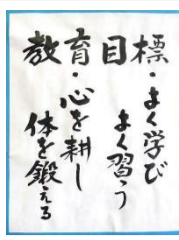 教育目標
・よく学び
よく習う
・心を耕し
体を鍛える